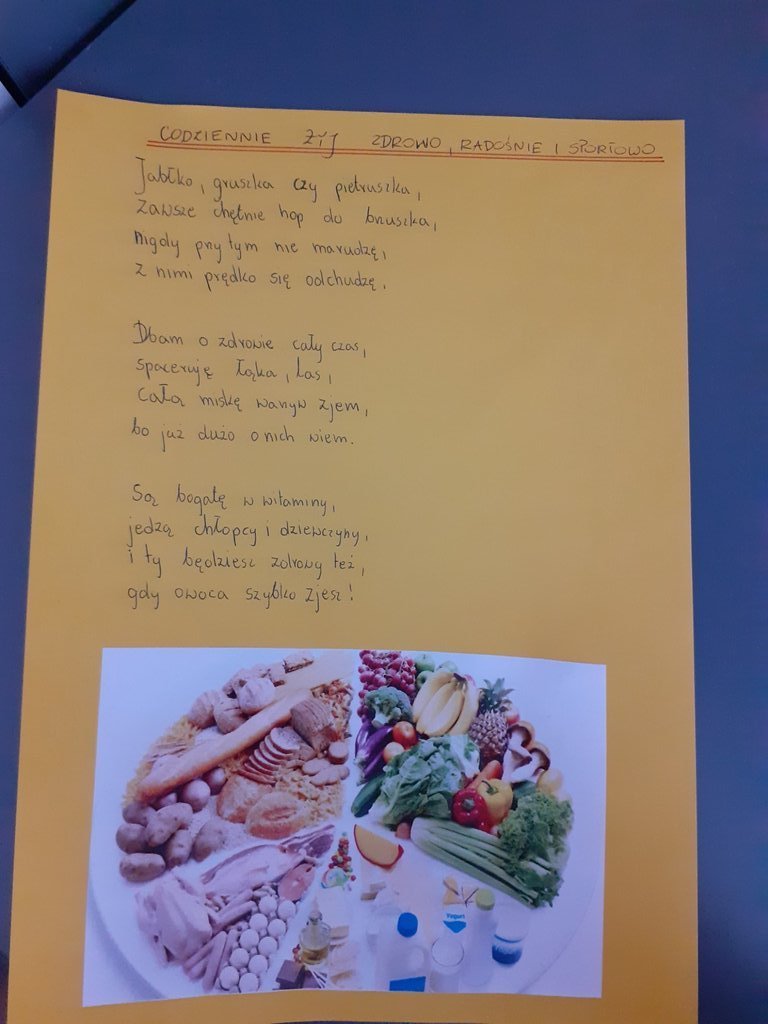 CODZIENNIE ŻYJ ZDROWO, RADOŚNIE I SPORTOWO
Jabłko, gruszka czy pietruszka,
Zawsze chętnie hop do brzuszka,
Nigdy przy tym nie marudzę,
Z nimi prędko się odchudzę.
Dbam o zdrowie cały czas,
spaceruję łąka, las,
Całą miskę warzyw zjem,
bo już dużo o nich wiem.
Są bogatę w witaminy,
jedzą chłopcy i dziewczyny,
i ty będziesz zdrowy też,
gdy owoca szybko zjesz!
Yogurt